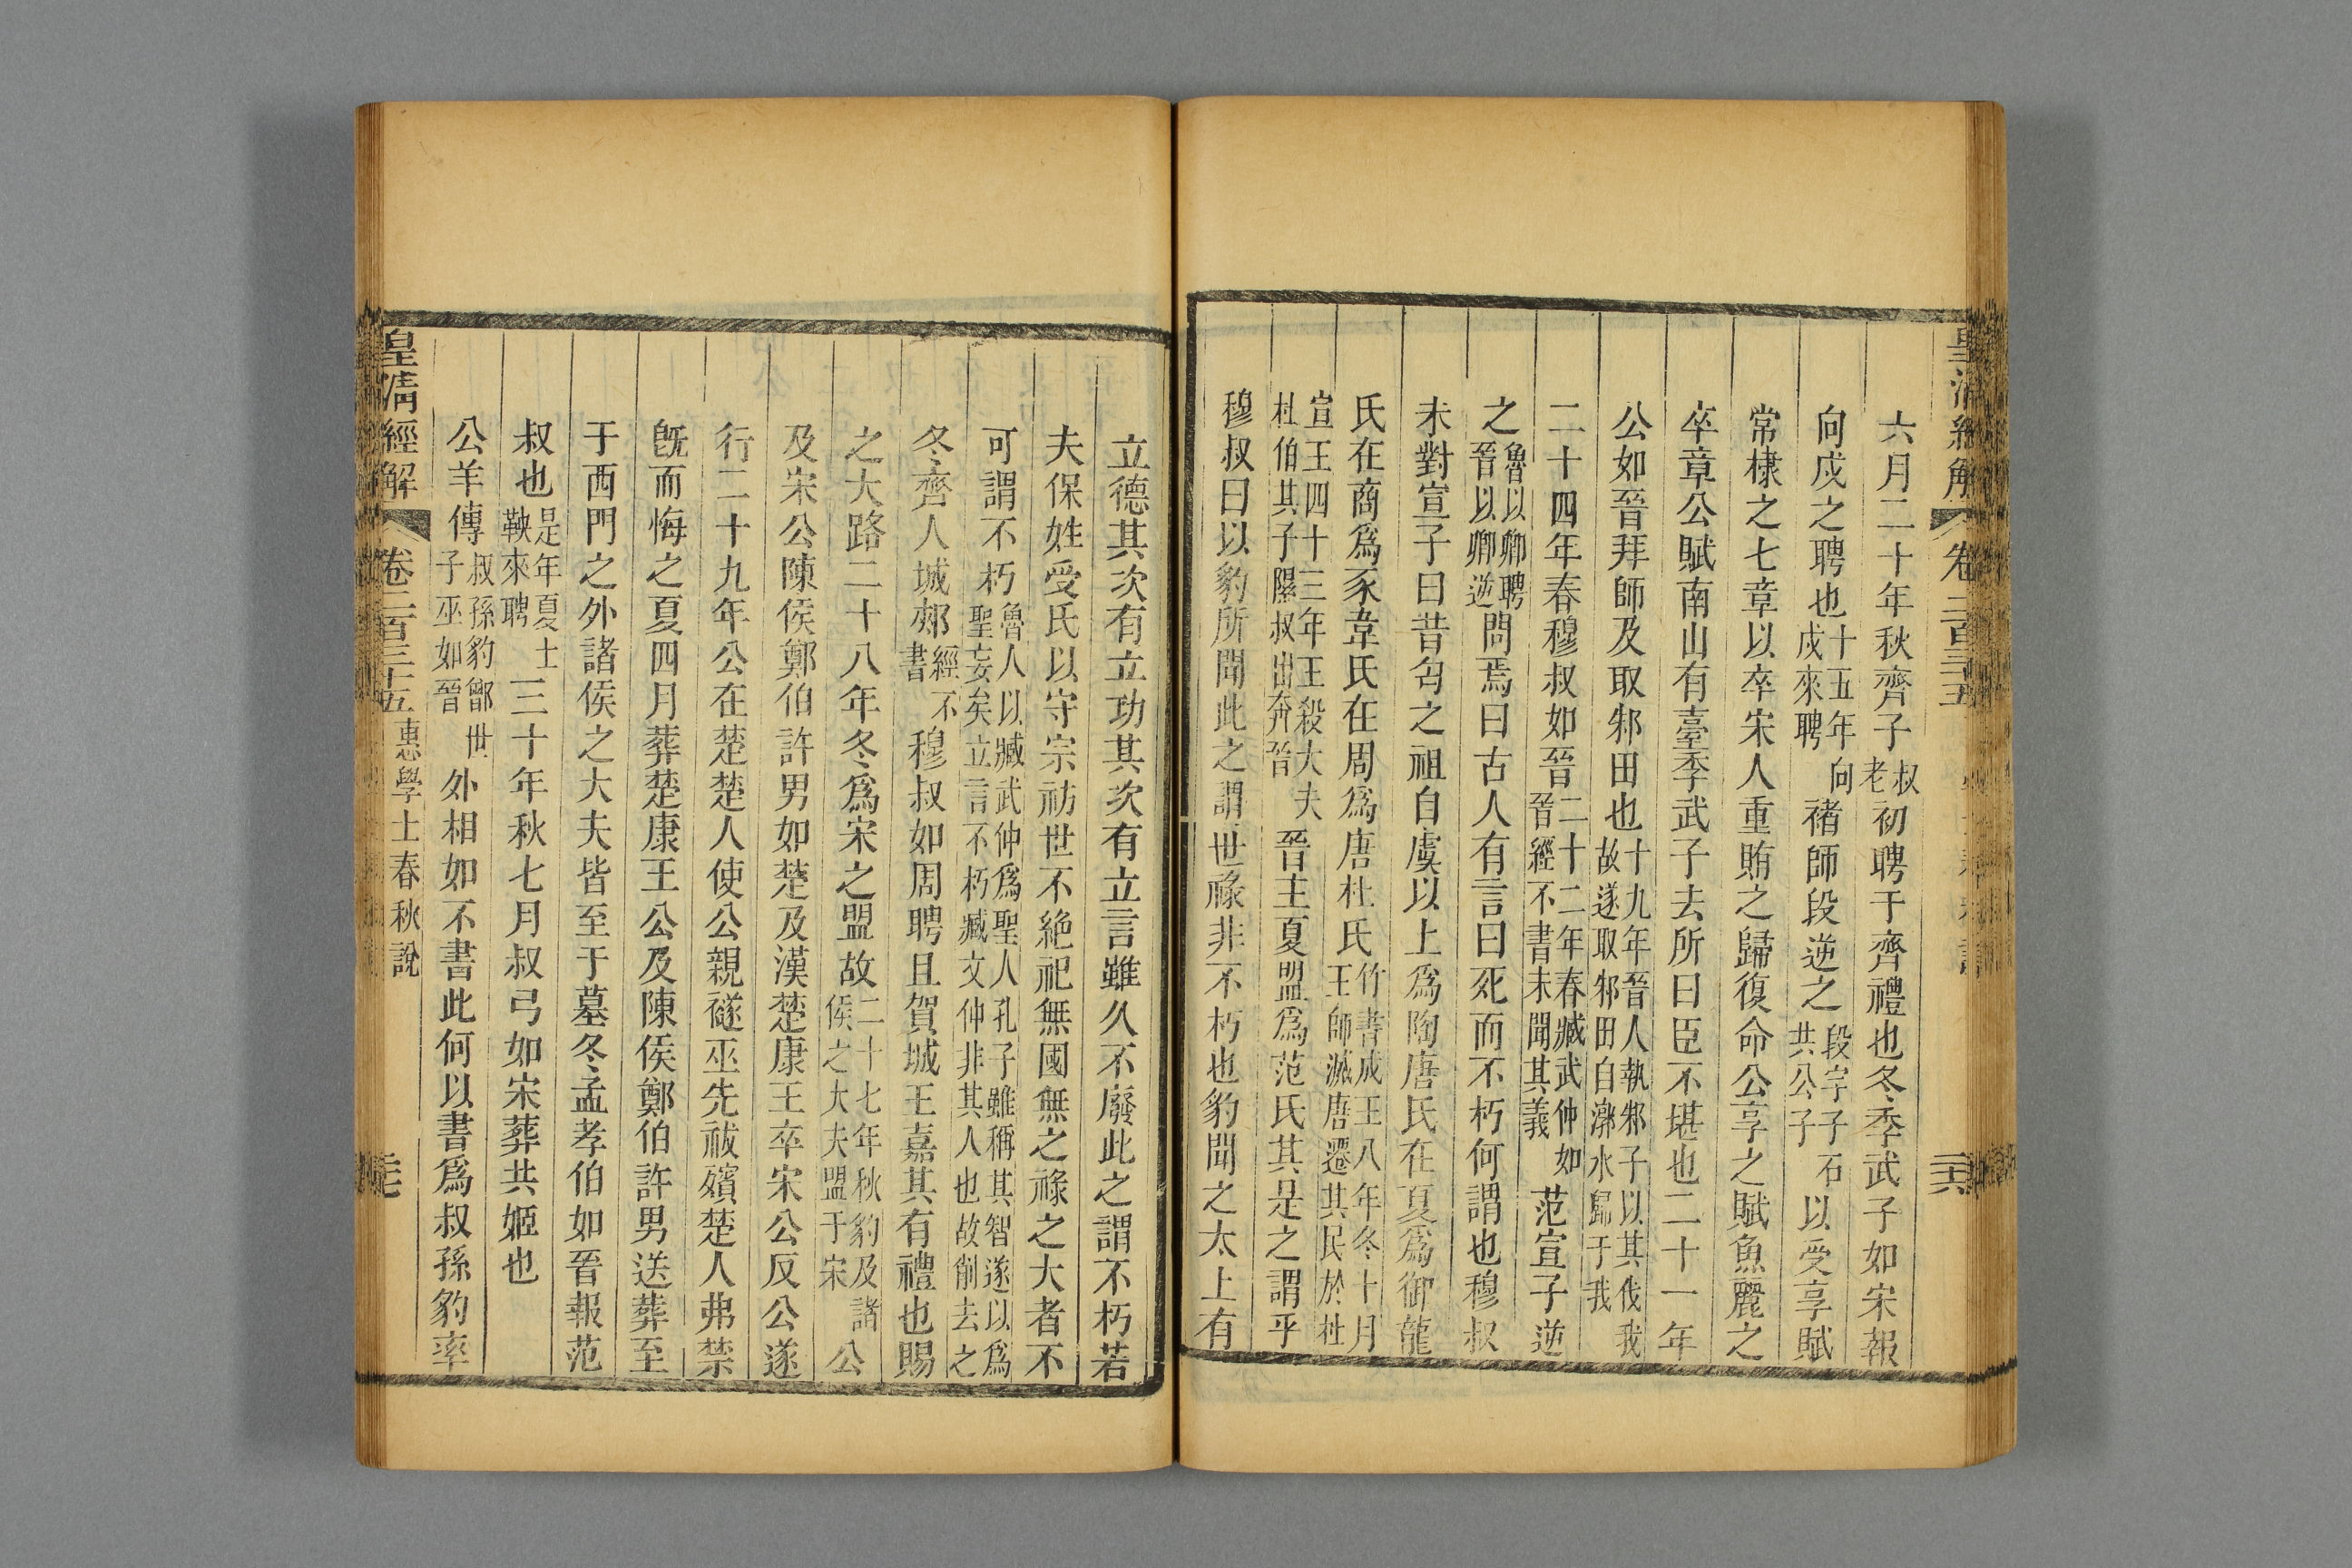 六月二十年秋齊子叔老初聘于齊禮也冬季武子如宋報
向戌之聘也十五年向戌來聘褚師段逆之段字子石共公子以受享賦
常棣之七章以卒宋人重賄之歸復命公享之賦魚麗之
卒章公賦南山有臺季武子去所曰臣不堪也二十一年
公如晉拜師及取邾田也十九年晉人執邾子以其伐我故遂取邾田自漷水歸于我
二十四年春穆叔如晉二十二年春臧武仲如晉經不書未聞其義范宣子逆
之魯以卿聘晉以卿逆問焉曰古人有言曰死而不朽何謂也穆叔
未對宣子曰昔匄之祖自虞以上爲陶唐氏在夏爲御龍
氏在商爲豕韋氏在周爲唐杜氏竹書成王八年冬十月王師滅唐遷其民於杜
宣王四十三年王殺大夫杜伯其子隰叔出奔晉晉主夏盟爲范氏其是之謂乎
穆叔曰以豹所聞此之謂世祿非不朽也豹聞之太上有
立德其次有立功其次有立言雖久不廢此之謂不朽若
夫保姓受氏以守宗祊世不絶祀無國無之祿之大者不
可謂不朽魯人以臧武仲爲聖人孔子雖稱其智遂以爲聖妄矣立言不朽臧文仲非其人也故削去之
冬齊人城郟經不書穆叔如周聘且賀城王嘉其有禮也賜
之大路二十八年冬爲宋之盟故二十七年秋豹及諸侯之大夫盟于宋公
及宋公陳侯鄭伯許男如楚及漢楚康王卒宋公反公遂
行二十九年公在楚楚人使公親襚巫先祓殯楚人弗禁
旣而悔之夏四月葬楚康王公及陳侯鄭伯許男送葬至
于西門之外諸侯之大夫皆至于墓冬孟孝伯如晉報范
叔也是年夏士鞅來聘三十年秋七月叔弓如宋葬共姬也
公羊傳叔孫豹鄫世子巫如晉外相如不書此何以書爲叔孫豹率
皇清經解
卷二百三十五
惠學士春秋說